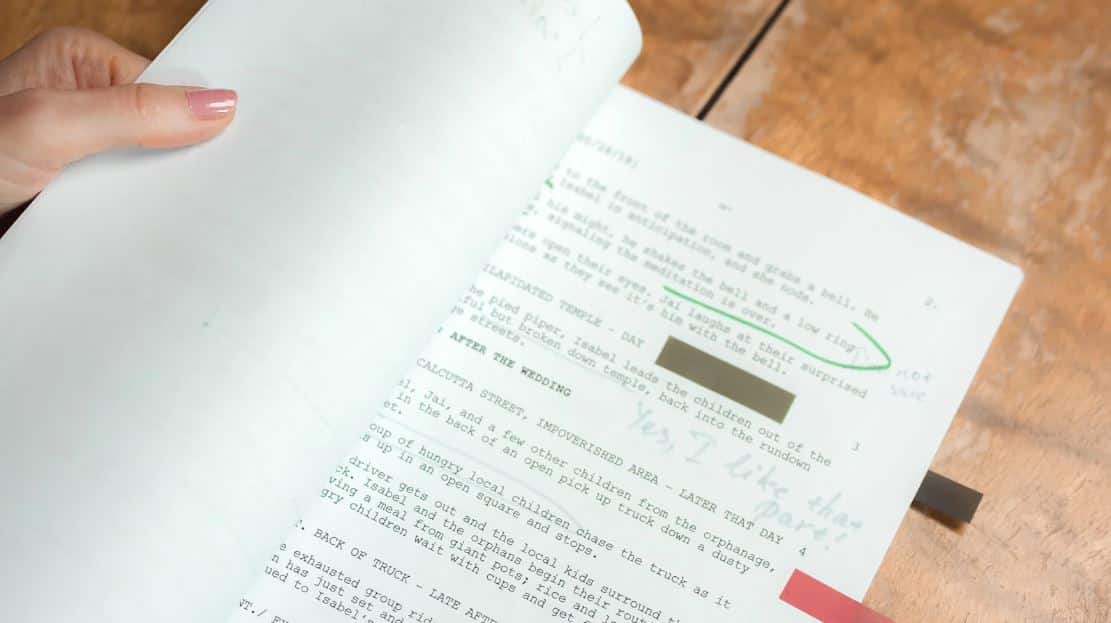 2.
to the front of the room and grabs a bell. He
Isabel in anticipation, and she nods.
his might, he shakes the bell and a low ring
signaling the meditation is over.
open their eyes, Jai laughs at their surprised
as they see it's him with the bell.
not sure
ILAPIDATED TEMPLE - DAY 3
pied piper, Isabel leads the children out of the
ful but broken down temple, back into the rundown
streets.
Yes, I like that
part!
AFTER THE WEDDING
CALCUTTA STREET, IMPOVERISHED AREA - LATER THAT DAY 4
el, Jai, and a few other children from the orphanage,
in the back of an open pick up truck down a dusty
et.
oup of hungry local children chase the truck as it
s up in an open square and stops.
driver gets out and the local kids surround
ck. Isabel and the orphans begin their
ving a meal from giant pots; rice and
gry children wait with cups and get
. BACK OF TRUCK - LATE AFTE
e exhausted group rid
n has just set and
ued to Isabel's